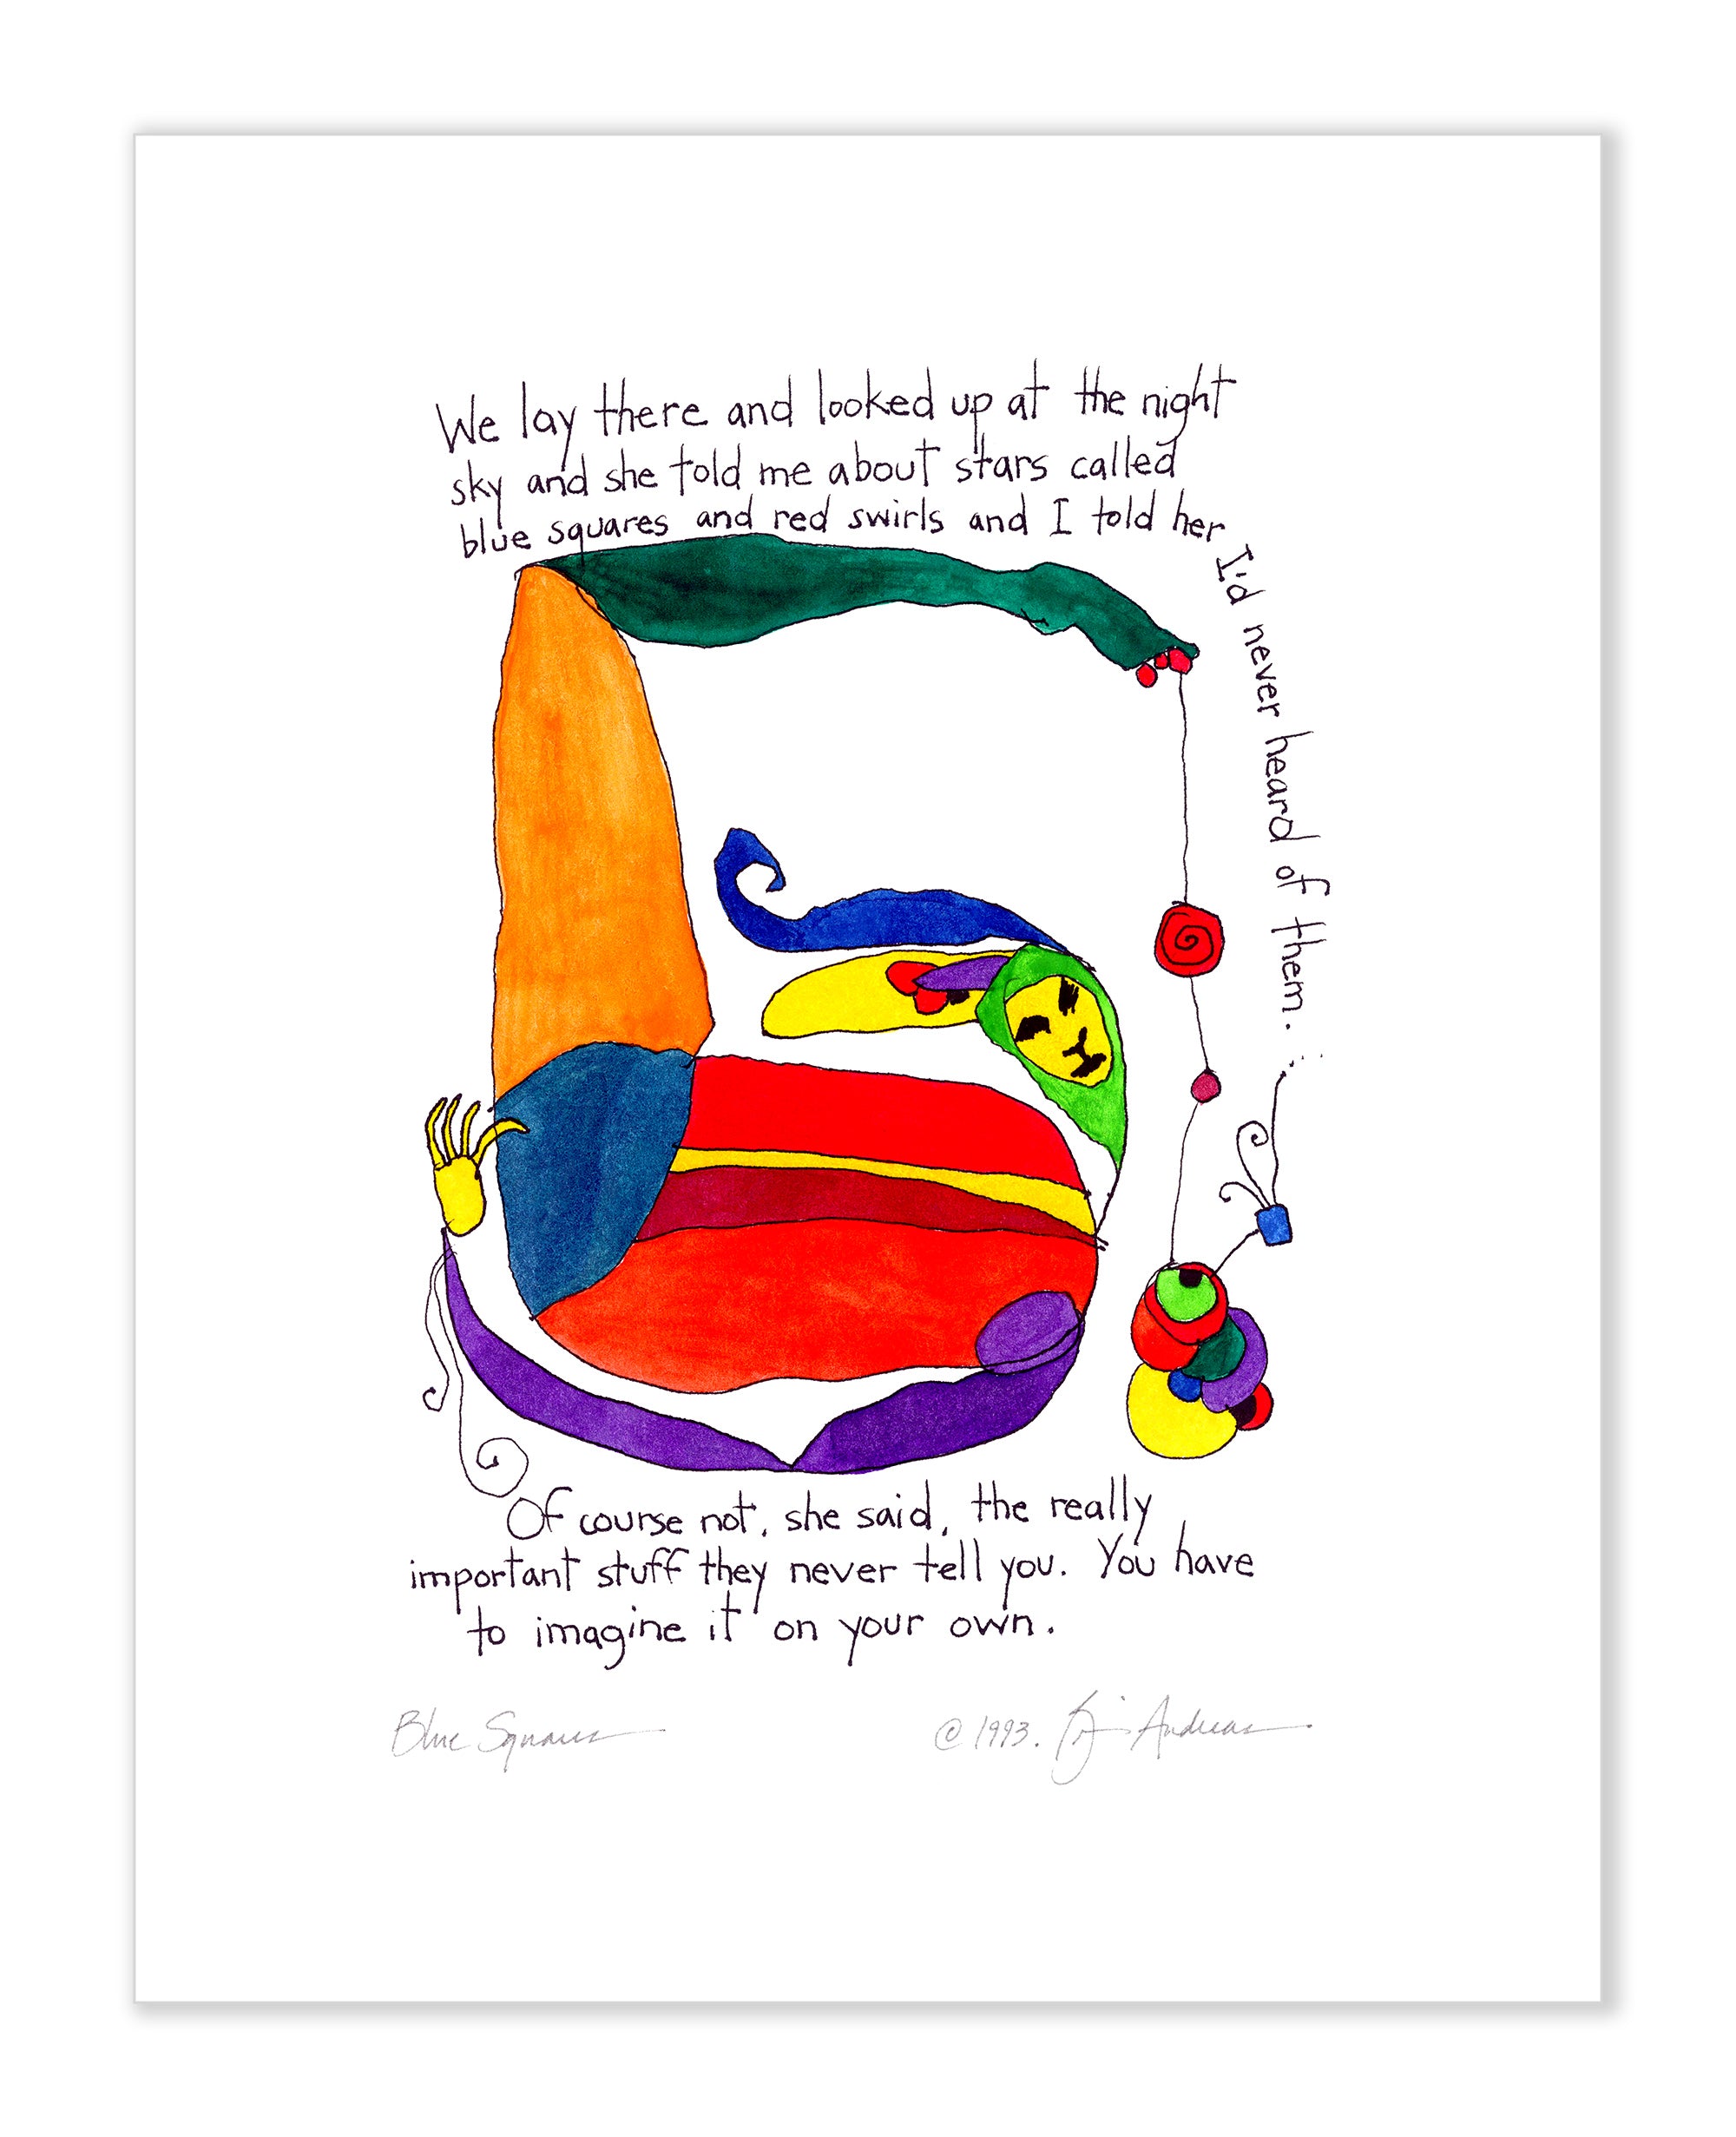 We lay there and looked up at the night
sky and she told me about stars called
blue squares and red swirls and I told her
I'd never heard of them.
Of course not, she said, the really
important stuff they never tell you. You have
to imagine it on your own.
Blue Squares
© 1993. Brian Andreas